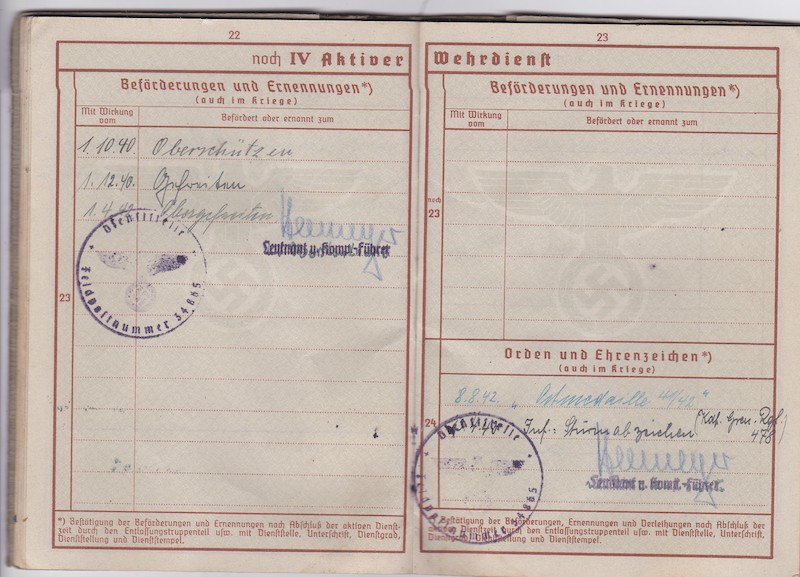 22
noch IV Aktiver
Beförderungen und Ernennungen*)
(auch im Kriege)
Mit Wirkung vom
Befördert oder ernannt zum
1.10.40. Oberschützen
1.12.40. Gefreiten
1.4.42. Obergefreiten
Leutnant u. Komp.-Führer
23
Dienststelle
Feldpostnummer 34865
*) Bestätigung der Beförderungen und Ernennungen nach Abschluß der aktiven Dienst-
zeit durch den Entlassungstruppenteil usw. mit Dienststelle, Unterschrift, Dienstgrad,
Dienststellung und Dienststempel.
23
Wehrdienst
Beförderungen und Ernennungen*)
(auch im Kriege)
Mit Wirkung vom
Befördert oder ernannt zum
noch
23
Orden und Ehrenzeichen*)
(auch im Kriege)
8.8.42. „Ostmedaille 41/42"
24
Inf. Sturmabzeichen (Kdf. Gren. Rgt. 478)
Leutnant u. Komp.-Führer
Dienststelle
Feldpostnummer 34865
*) Bestätigung der Beförderungen, Ernennungen und Verleihungen nach Abschluß der
aktiven Dienstzeit durch den Entlassungstruppenteil usw. mit Dienststelle, Unterschrift,
Dienstgrad, Dienststellung und Dienststempel.